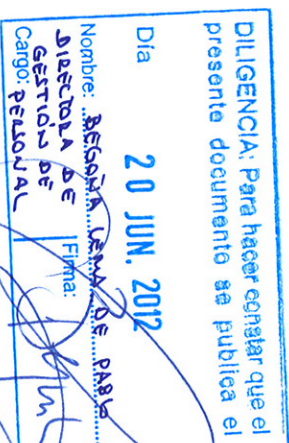 DILIGENCIA: Para hacer constar que el
presente documento se publica el
Día 20 JUN. 2012
Nombre: BEGOÑA LEMA DE PABLO
DIRECTORA DE Firma:
GESTIÓN DE
Cargo: PERSONAL